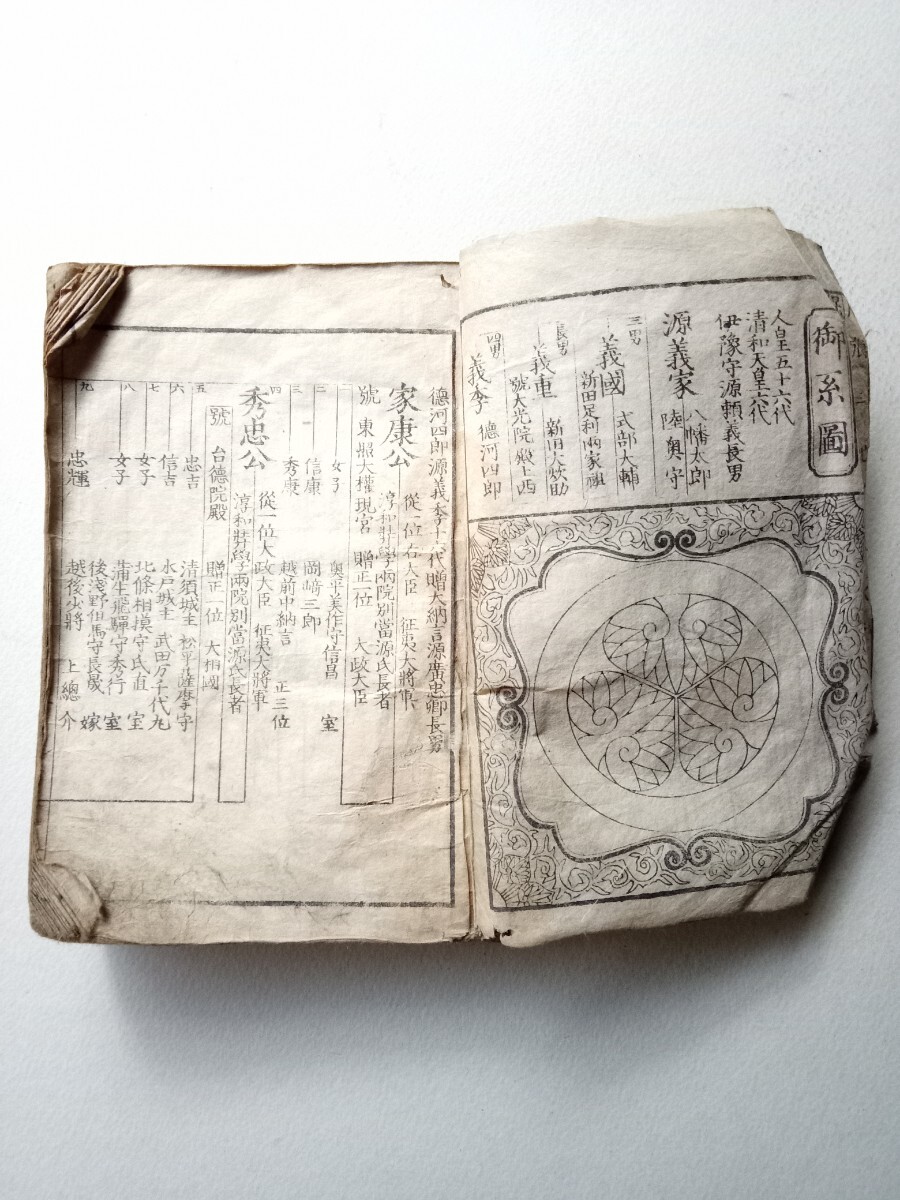 御系圖
人皇五十六代
清和天皇六代
伊豫守源頼義長男
源義家 八幡太郎
陸奥守
三男 義國 式部大輔
新田足利兩家祖
長男 義重 新田大炊助
號大光院殿上西
四男 義季 德河四郎
德河四郎源義季十二代贈大納言源廣忠卿長男
家康公 從一位右大臣 征夷大將軍
淳和奨學兩院別當源氏長者
號 東照大權現宮 贈正一位 大政大臣
一 女子 奥平美作守信昌 室
二 信康 岡﨑三郎
三 秀康 越前中納言 正三位
四 秀忠公 從一位大政大臣 征夷大將軍
淳和奨學兩院別當源氏長者
號 台德院殿 贈正一位 大相國
五 忠吉 清須城主 松平薩摩守
六 信吉 水戸城主 武田万千代丸
七 女子 北條相摸守氏直 室
八 女子 蒲生飛驒守秀行 室
後淺野但馬守長晟 嫁
九 忠輝 越後少將 上總介